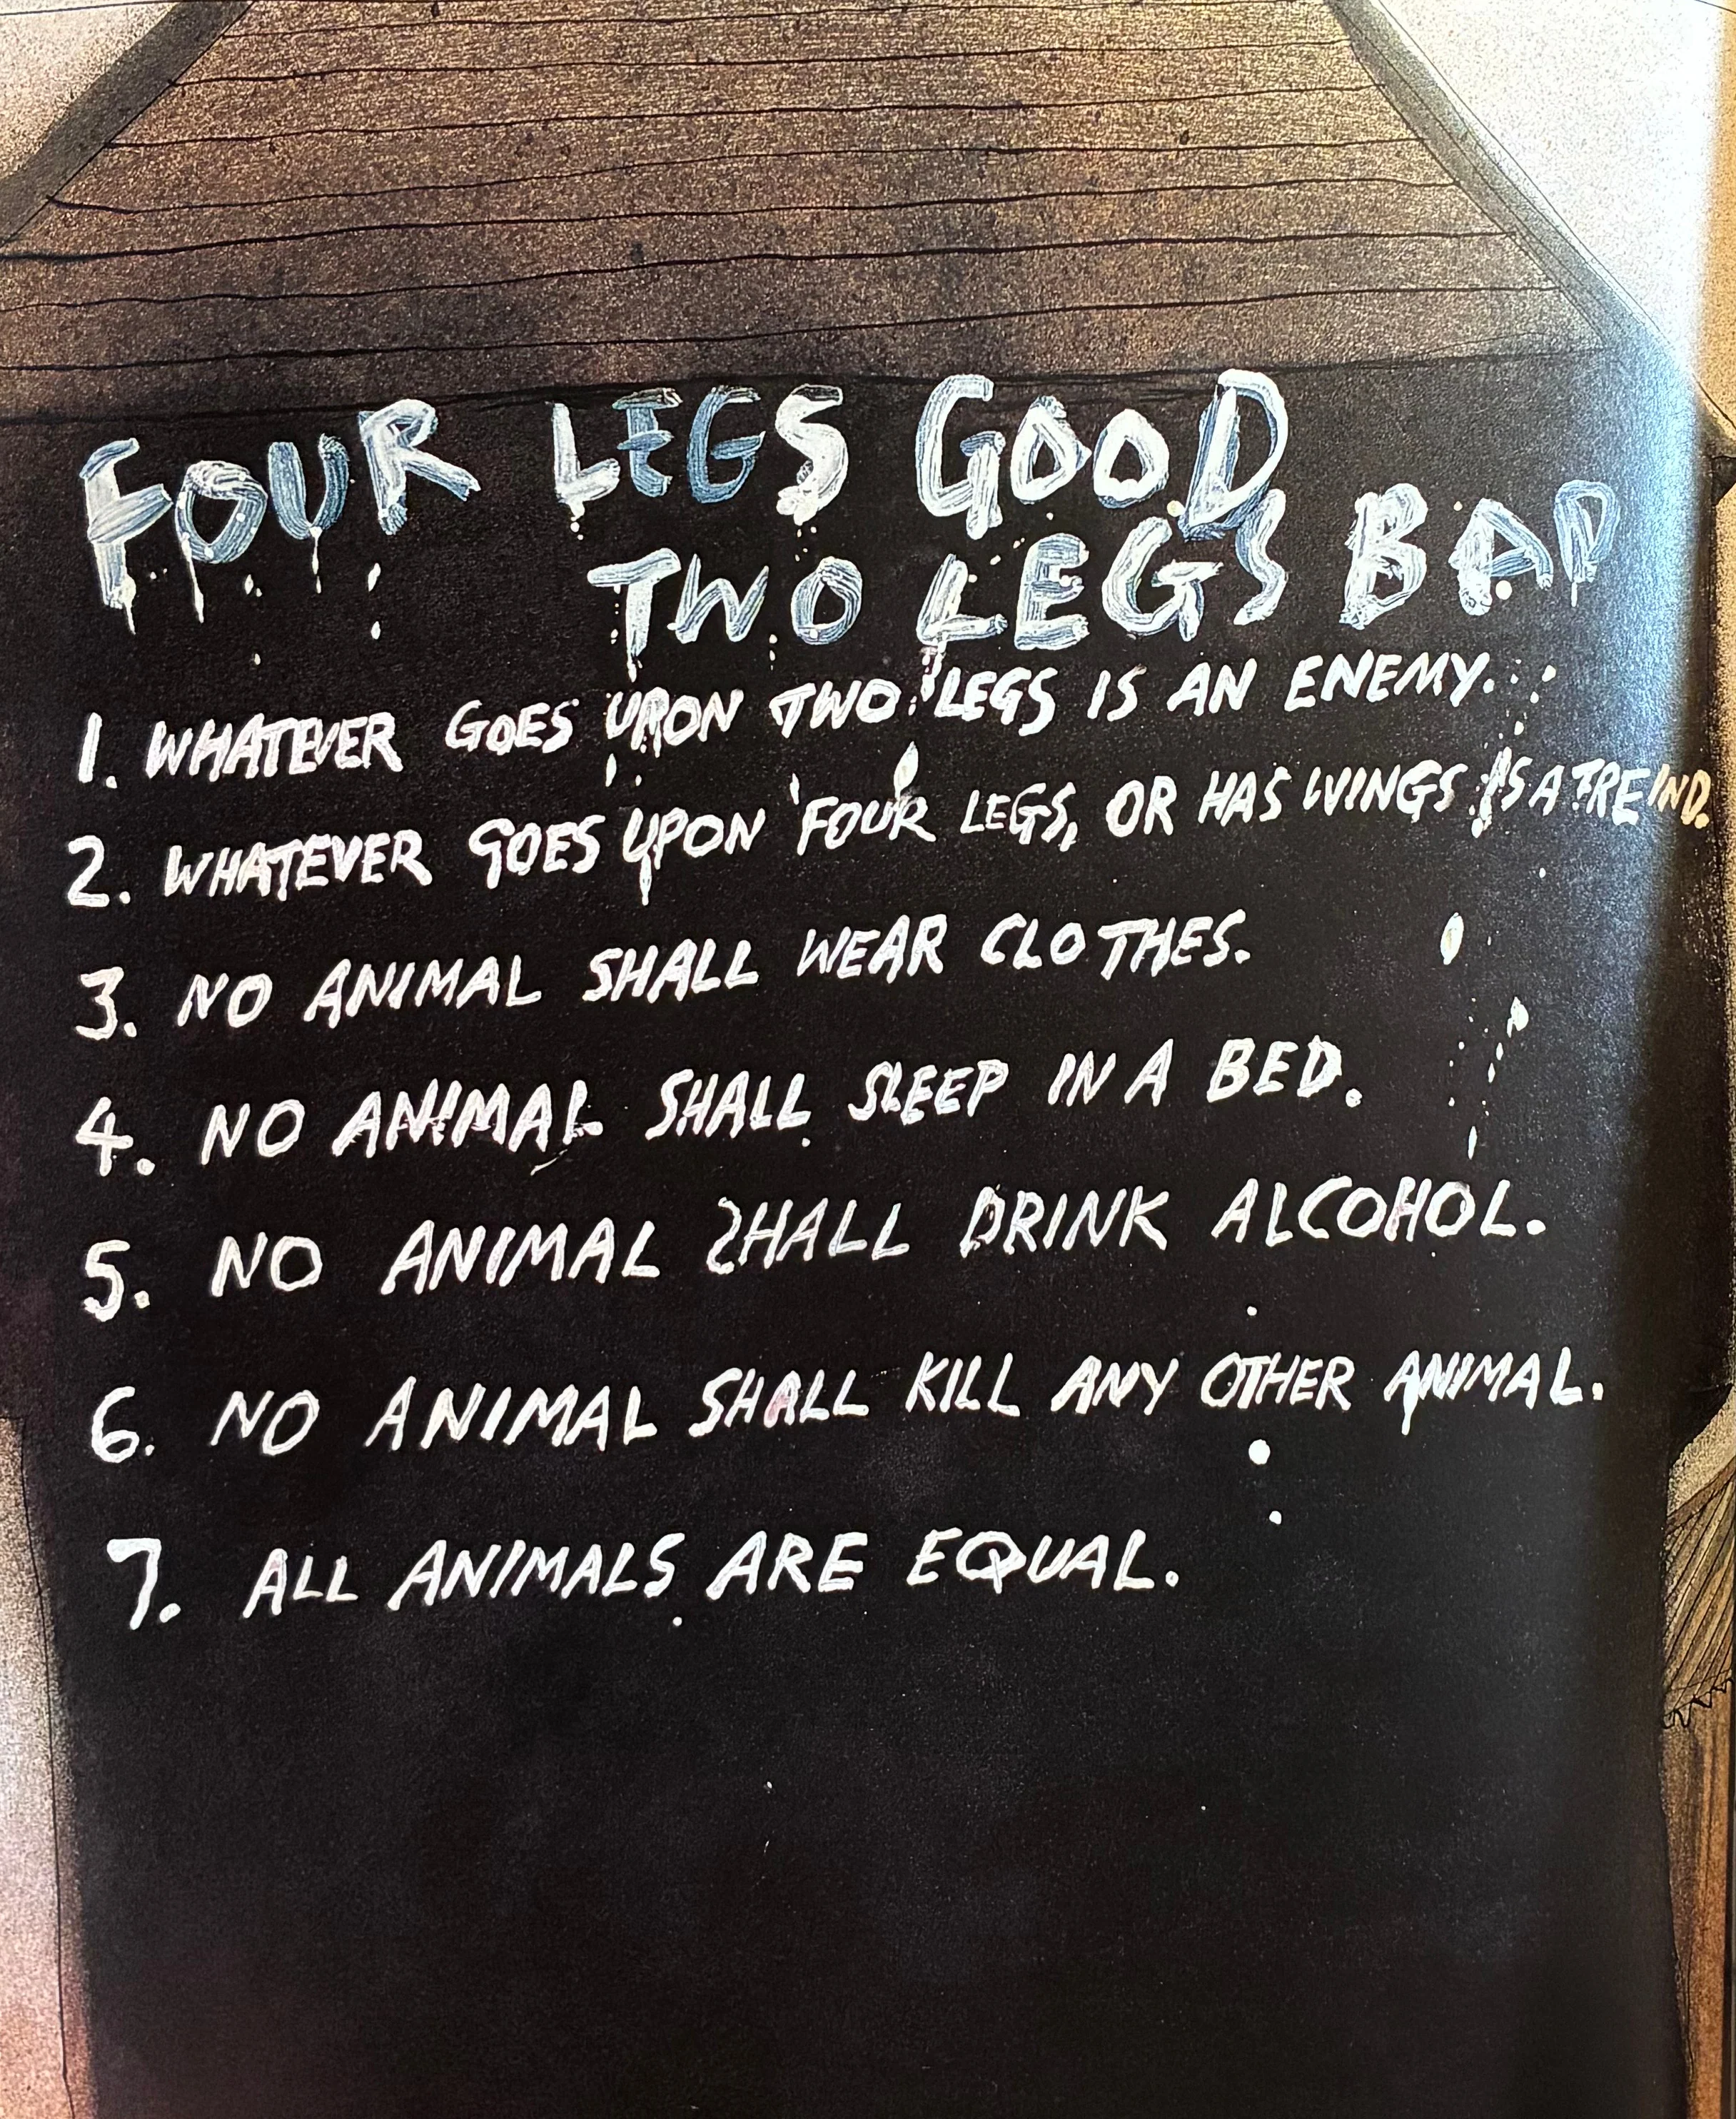 FOUR LEGS GOOD
TWO LEGS BAD
1. WHATEVER GOES UPON TWO LEGS IS AN ENEMY.
2. WHATEVER GOES UPON FOUR LEGS, OR HAS WINGS IS A FREIND.
3. NO ANIMAL SHALL WEAR CLOTHES.
4. NO ANIMAL SHALL SLEEP IN A BED.
5. NO ANIMAL SHALL DRINK ALCOHOL.
6. NO ANIMAL SHALL KILL ANY OTHER ANIMAL.
7. ALL ANIMALS ARE EQUAL.